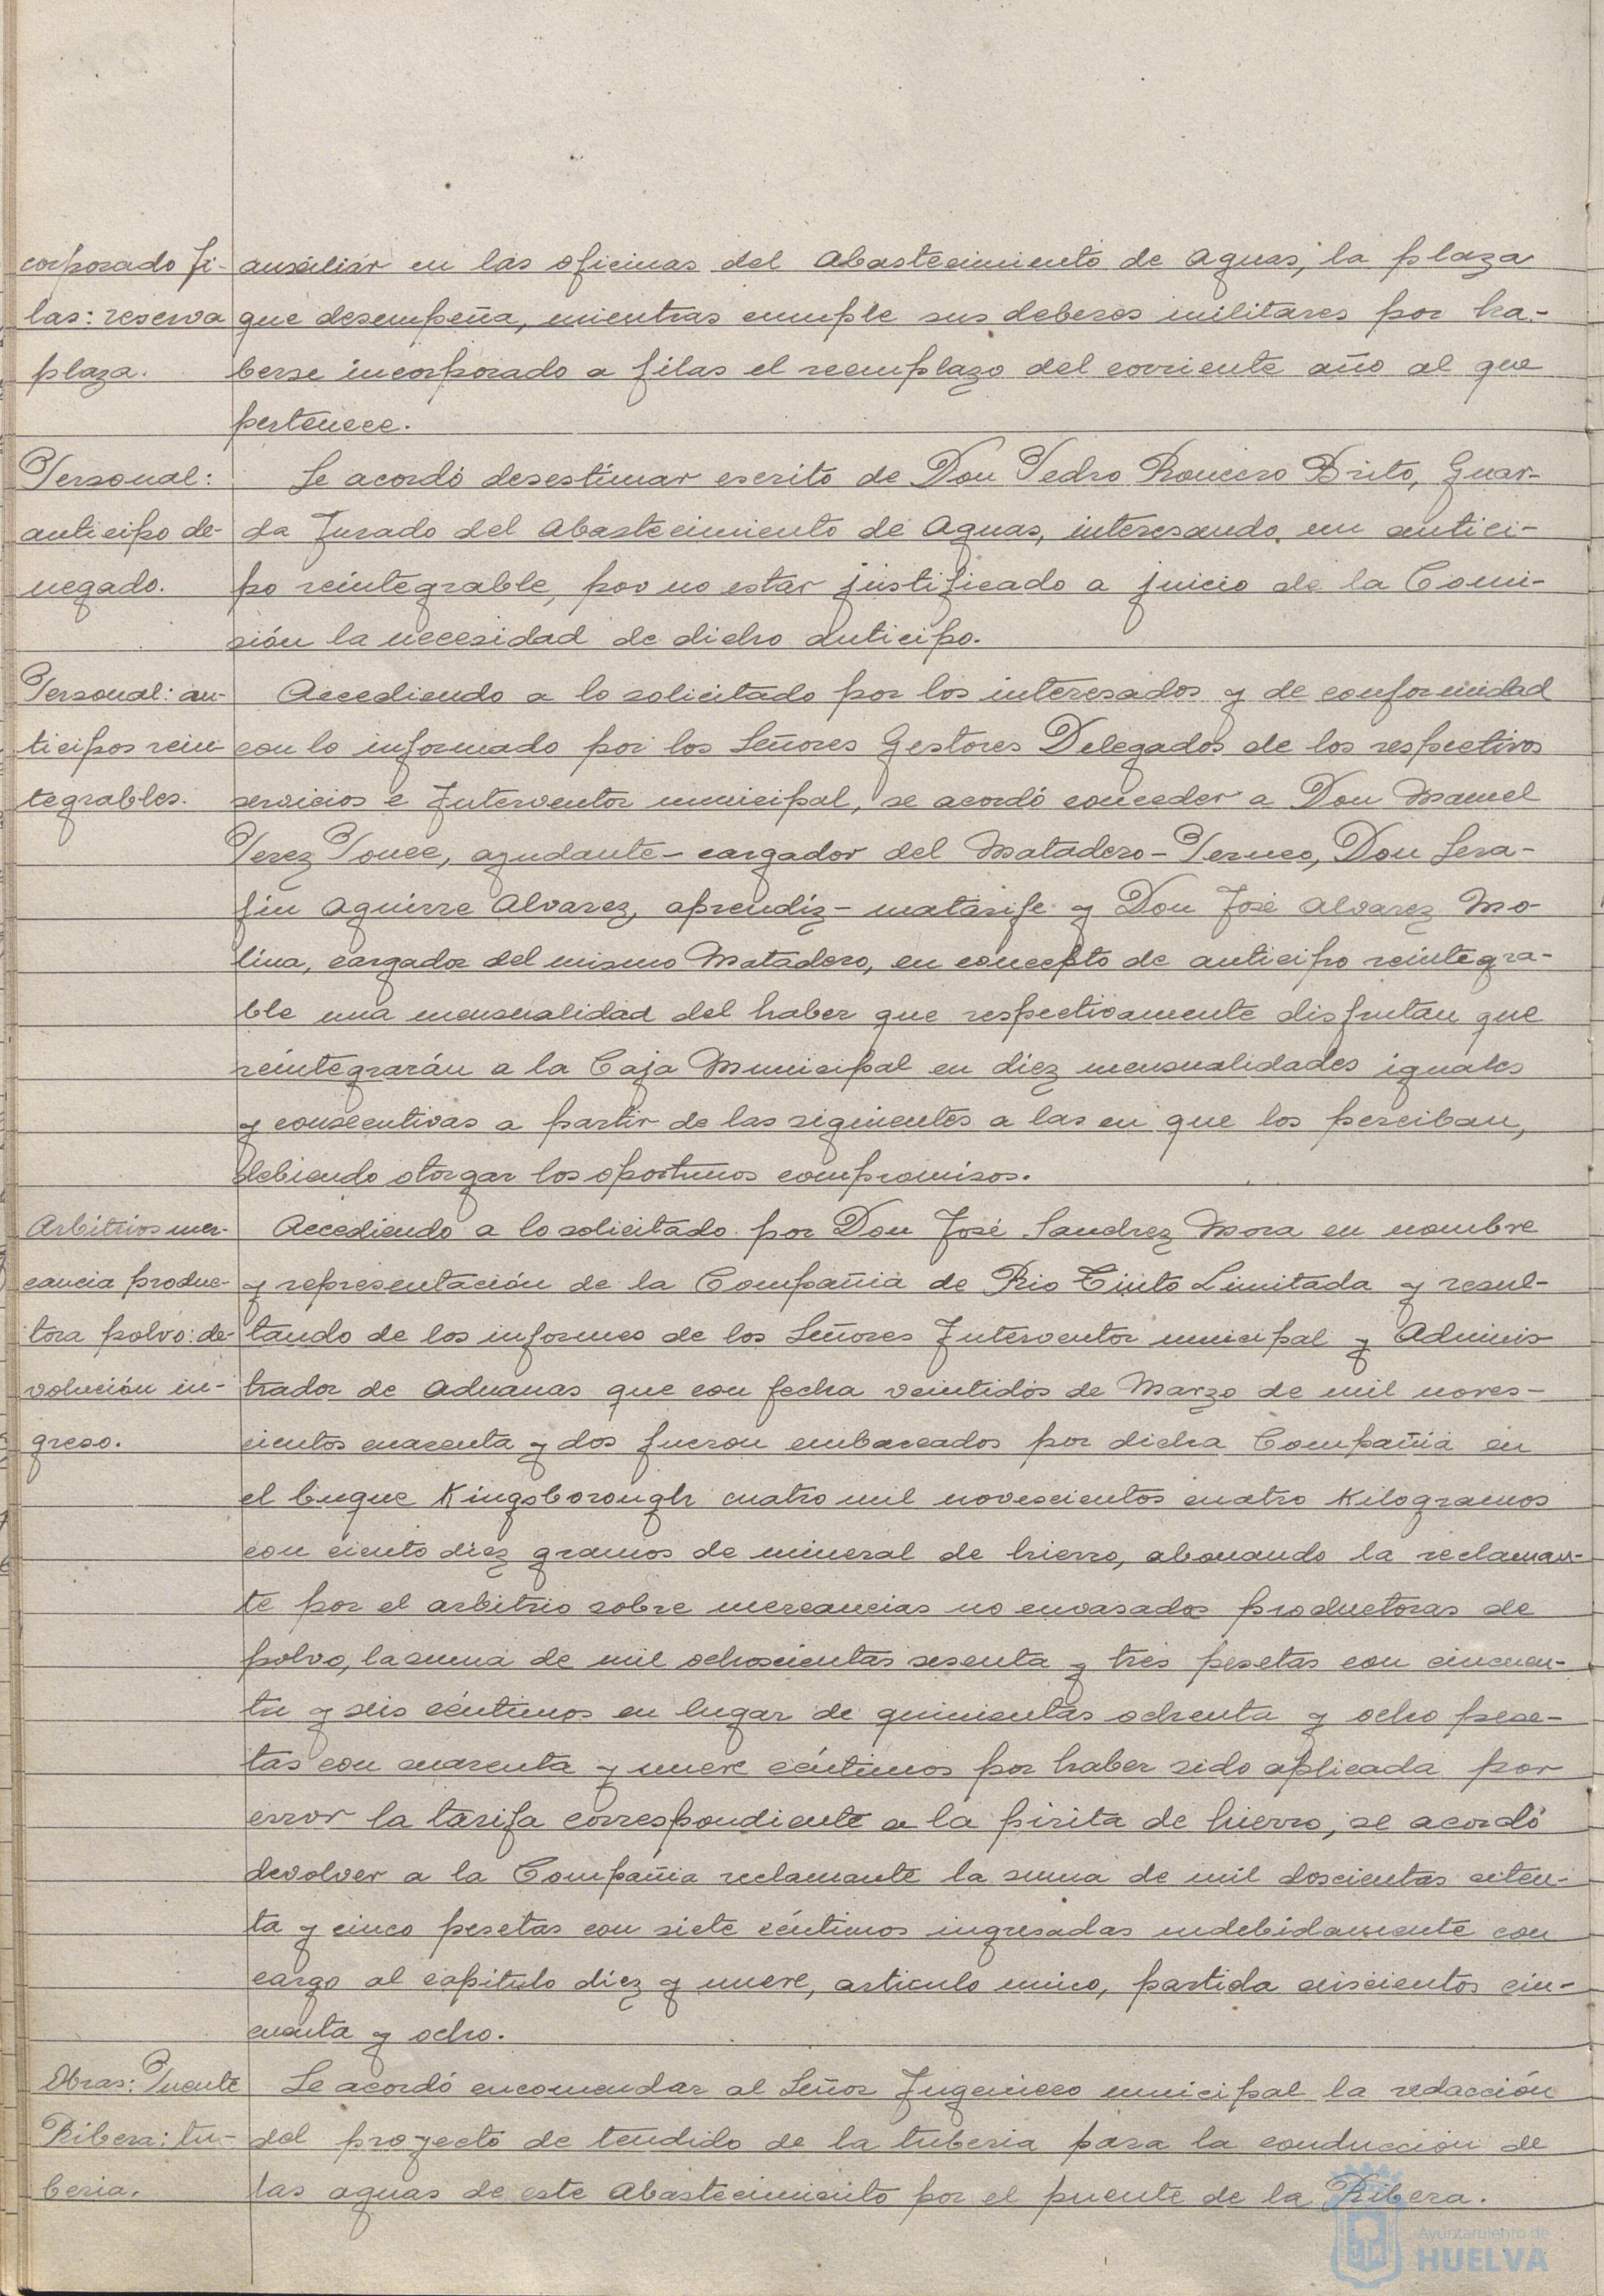 corporado fi-
las: reserva
plaza.
auxiliar en las oficinas del Abastecimiento de Aguas, la plaza
que desempeña, mientras cumple sus deberes militares por ha-
berse incorporado a filas el reemplazo del corriente año al que
pertenece.
Personal:
anticipo de-
negado.
Se acordó desestimar escrito de Don Pedro Romero Brito, Guar-
da Jurado del Abastecimiento de Aguas, interesando un antici-
po reintegrable, por no estar justificado a juicio de la Comi-
sión la necesidad de dicho anticipo.
Personal: an-
ticipos rein-
tegrables.
Accediendo a lo solicitado por los interesados y de conformidad
con lo informado por los Señores Gestores Delegados de los respectivos
servicios e Interventor municipal, se acordó conceder a Don Manuel
Perez Ponce, ayudante-cargador del Matadero-Perneo, Don Sera-
fin Aguirre Alvarez, aprendiz-matarife y Don José Alvarez Mo-
lina, cargador del mismo Matadero, en concepto de anticipo reintegra-
ble una mensualidad del haber que respectivamente disfrutan que
reintegrarán a la Caja Municipal en diez mensualidades iguales
y consecutivas a partir de las siguientes a las en que los perciban,
debiendo otorgar los oportunos compromisos.
Arbitrios mer-
cancia produc-
tora polvo: de-
volución in-
greso.
Accediendo a lo solicitado por Don José Sanchez Mora en nombre
y representación de la Compañia de Rio Tinto Limitada y resul-
tando de los informes de los Señores Interventor municipal y Adminis
trador de Aduanas que con fecha veintidós de Marzo de mil noves-
cientos cuarenta y dos fueron embarcados por dicha Compañia en
el buque Kingsborough cuatro mil novescientos cuatro Kilogramos
con ciento diez gramos de mineral de hierro, abonando la reclaman-
te por el arbitrio sobre mercancias no envasadas productoras de
polvo, la suma de mil ochoscientas sesenta y tres pesetas con cincuen-
ta y seis céntimos en lugar de quinientas ochenta y ocho pese-
tas con cuarenta y nueve céntimos por haber sido aplicada por
error la tarifa correspondiente a la pirita de hierro, se acordó
devolver a la Compañia reclamante la suma de mil doscientas seten-
ta y cinco pesetas con siete céntimos ingresadas indebidamente con
cargo al capitulo diez y nueve, articulo unico, partida seiscientos cin-
cuenta y ocho.
Obras: Puente
Ribera: tu-
beria.
Se acordó encomendar al Señor Ingeniero municipal la redacción
del proyecto de tendido de la tuberia para la conducción de
las aguas de este Abastecimiento por el puente de la Ribera.
Ayuntamiento de
HUELVA